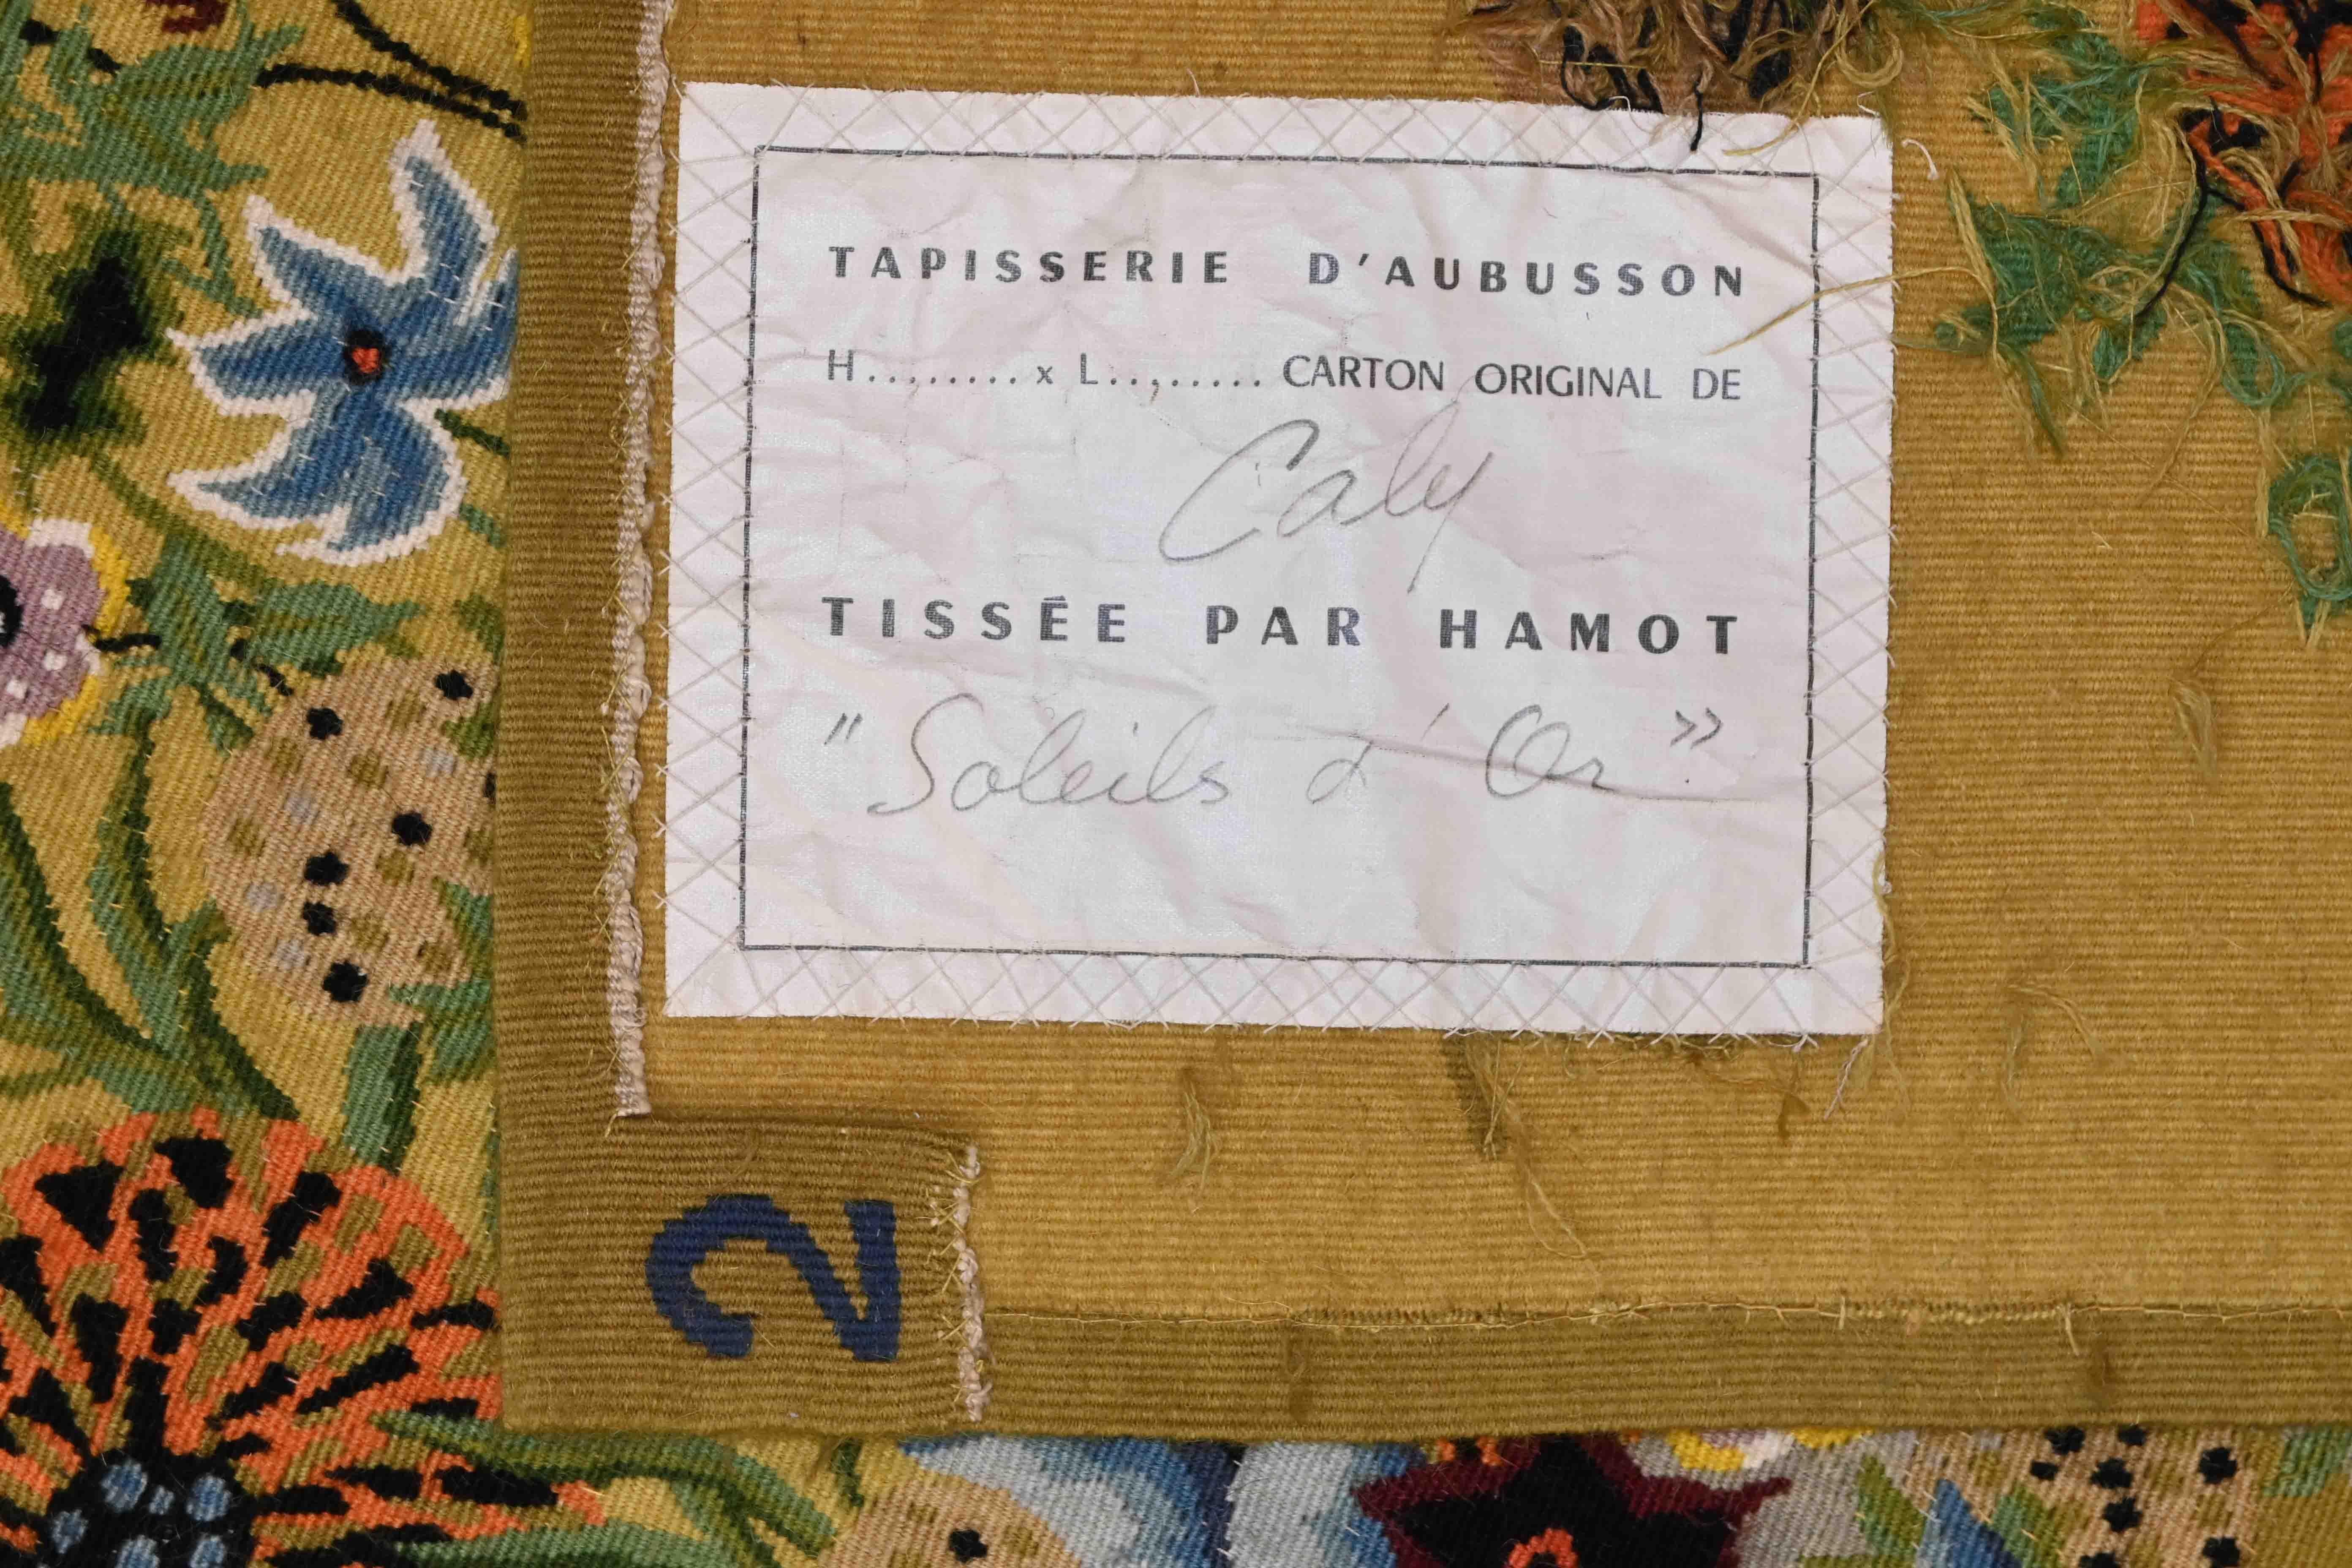 TAPISSERIE D'AUBUSSON
H......... x L......... CARTON ORIGINAL DE
Caly
TISSÉE PAR HAMOT
"Soleils d'Or"
2